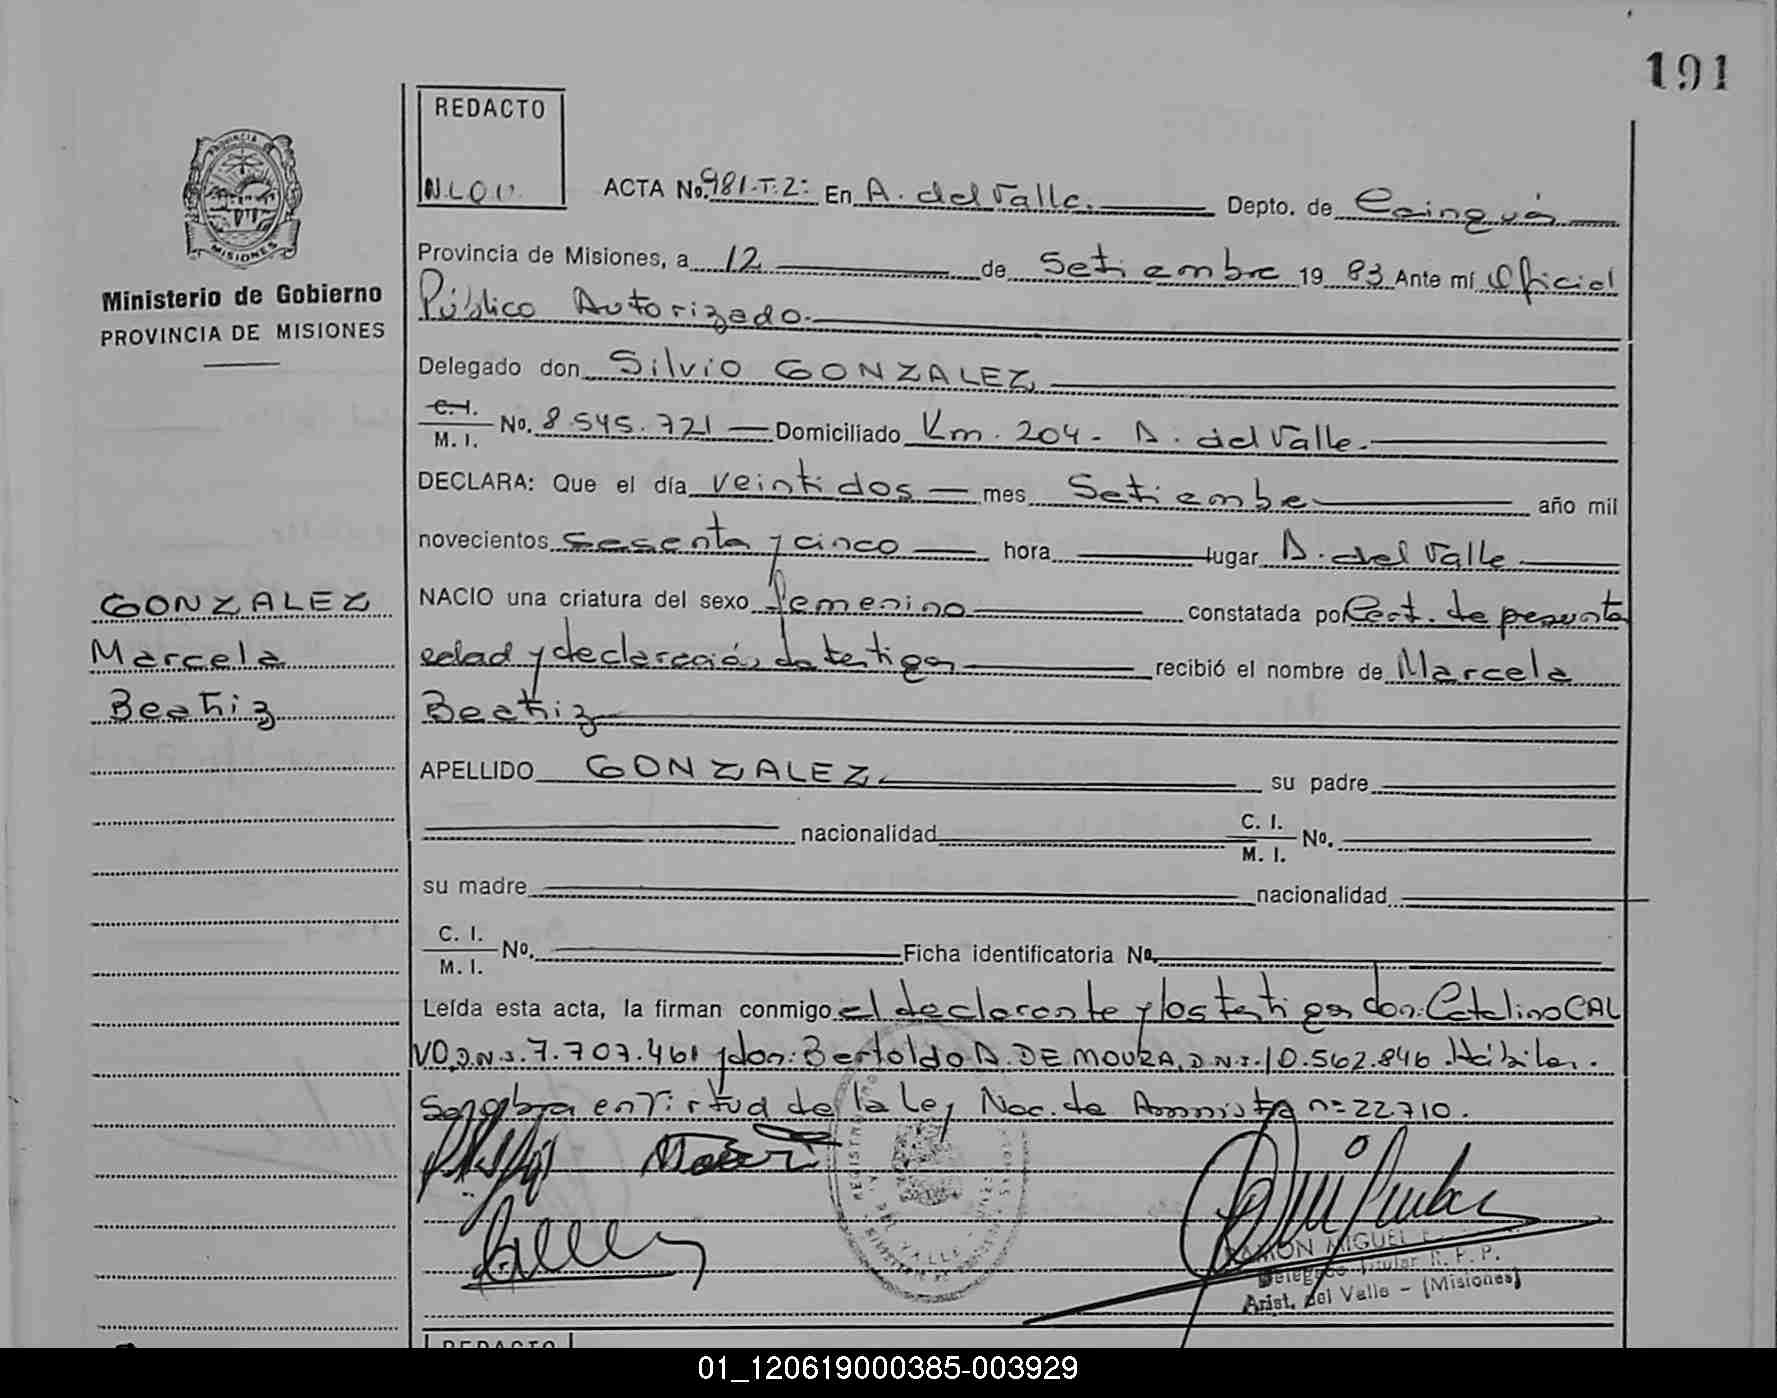 191
REDACTO
N.L.Q.V.
PROVINCIA
MISIONES
Ministerio de Gobierno
PROVINCIA DE MISIONES
ACTA No. 981-T.2: En A. del Valle. Depto. de Cainguás
Provincia de Misiones, a 12 de Setiembre 1983 Ante mí Oficial
Público Autorizado.
Delegado don Silvio GONZALEZ,
C. I.
M. I. No. 8.545.721 Domiciliado Km. 204- A. del Valle.
DECLARA: Que el día veintidos mes Setiembe año mil
novecientos sesenta y cinco hora lugar A. del Valle
GONZALEZ
Marcela
Beatriz
NACIO una criatura del sexo femenino constatada por Cert. de presunta
edad y declaración de testigos recibió el nombre de Marcela
Beatriz
APELLIDO GONZALEZ. su padre
nacionalidad C. I. M. I. No.
su madre nacionalidad
C. I. M. I. No. Ficha identificatoria No.
Leída esta acta, la firman conmigo el declarante y los testigos don: Catalino CAL
VO, D.N.I. 7.707.461 y don: Bertoldo A. DE MOURA, D.N.I. 10.562.846 Hábiles.
en virtud de la Ley Nac. de Amnistía nº 22.710.
RAMON MIGUEL
Delegado Titular R. P. P.
Arist. del Valle - (Misiones)
REDACTO
01_120619000385-003929